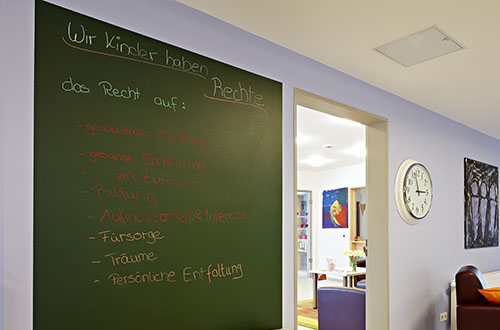 Wir Kinder haben
Rechte
das Recht auf:
- gewaltfreie Erziehung
- gesunde Ernährung
- ein Zuhause
- Bildung
- Aufmerksamkeit &
- Fürsorge
- Träume
- Persönliche Entfaltung